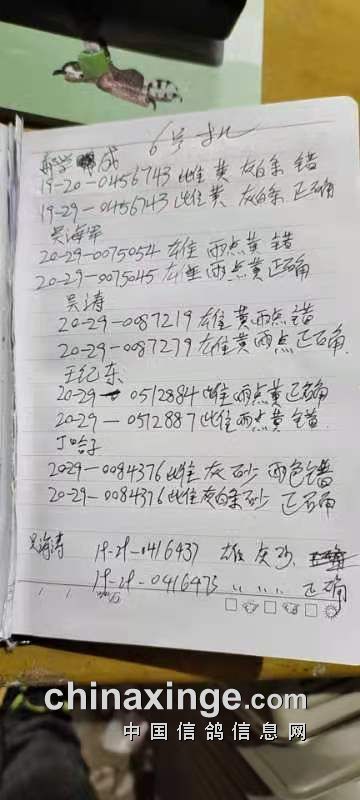 6号机
成
19-20-0456743 雌 黄 灰白条 错
19-29-0456743 雌 黄 灰白条 正确
吴海军
20-29-0075054 雄 雨点黄 错
20-29-0075045 雄 雨点黄 正确
吴涛
20-29-0087219 雄黄雨点 错
20-29-0087279 雄黄雨点 正确
王纪东
20-29-0512884 雌 雨点黄 正确
20-29-0512887 雌 雨点黄 错
丁哈子
2029-0084376 雌 灰 砂 雨色 错
20-29-0084376 雌 灰白条 砂 正确
吴海涛 19-29-0416437 雄 灰 砂
19-29-0416473 〃 〃 〃 正确
chinaxinge.com
中国信鸽信息网